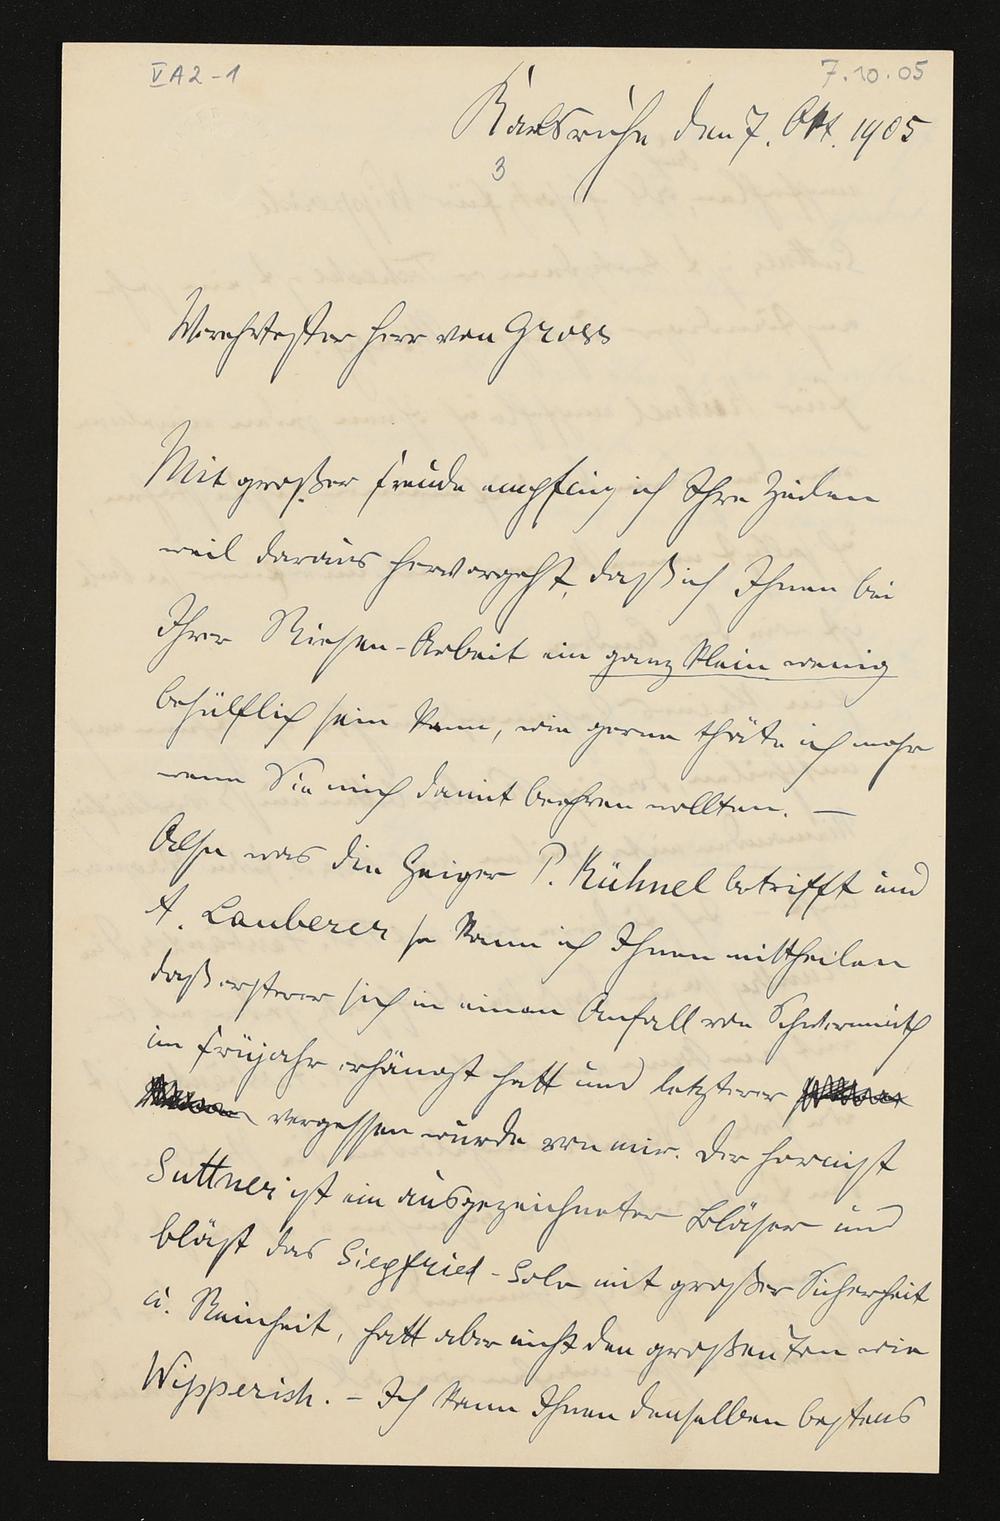 VA2-1
7.10.05
Karlsruhe den 7. Okt. 1905
3
Werthester Herr von Gross
Mit großer Freude empfing ich Ihre Zeilen
weil daraus hervorgeht, daß ich Ihnen bei
Ihrer Riesen-Arbeit ein ganz klein wenig
behülflich sein kann, wie gerne thäte ich mehr
wenn Sie mich damit beehren wollten. —
Also was die Geiger P. Kühnel betrifft und
A. Lauberer so kann ich Ihnen mittheilen
daß ersterer sich in einem Anfall von Schwermuth
im Früjahr erhängt hatt und letzterer
vergessen wurde von mir. Der Hornist
Suttner ist ein ausgezeichneter Bläser und
bläst das Siegfried-Solo mit großer Sicherheit
u. Reinheit, hatt aber nicht den großen Ton wie
Wipperich. – Ich kann Ihnen denselben bestens